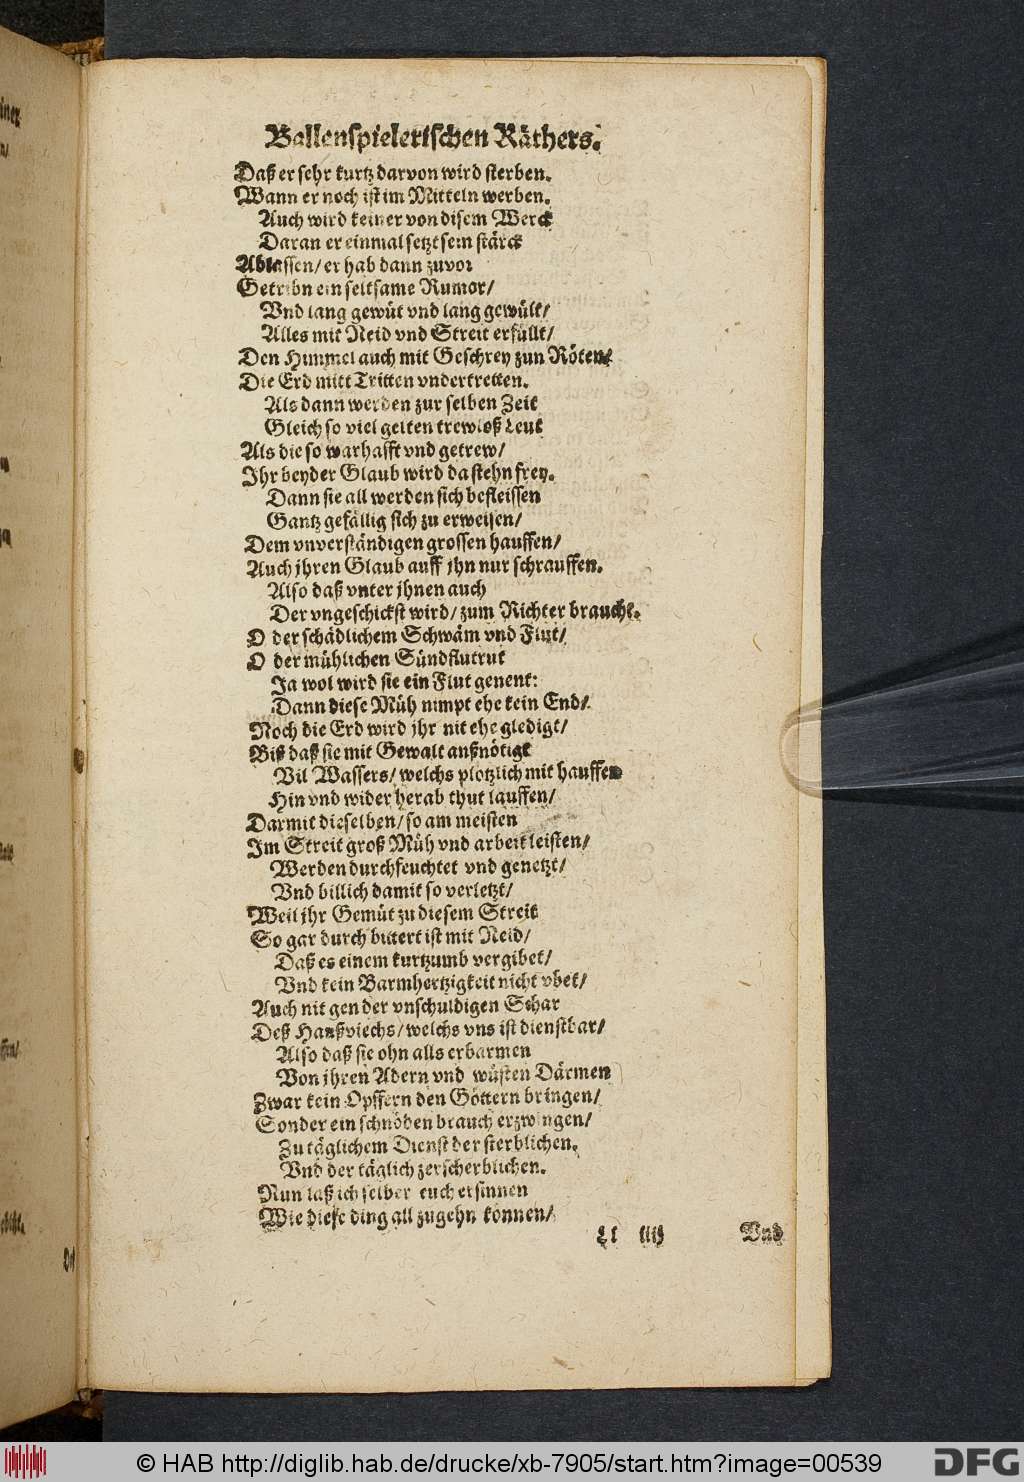 Ballenspielerischen Räthers.
Daß er sehr kurtz darvon wird sterben.
Wann er noch ist im Mitteln werben.
Auch wird keiner von disem Werck
Daran er einmal setzt sein stärck
Ablassen/ er hab dann zuvor
Getribn ein seltsame Rumor/
Vnd lang gewüt vnd lang gewült/
Alles mit Neid vnd Streit erfüllt/
Den Himmel auch mit Geschrey zun Röten/
Die Erd mitt Tritten vndertretten.
Als dann werden zur selben Zeit
Gleich so viel gelten trewloß Leut
Als die so warhafft vnd getrew/
Ihr beyder Glaub wird da stehn frey.
Dann sie all werden sich befleissen
Gantz gefällig sich zu erweisen/
Dem vnverständigen grossen hauffen/
Auch jhren Glaub auff jhn nur schrauffen.
Also daß vnter jhnen auch
Der vngeschickst wird/ zum Richter braucht.
O der schädlichem Schwäm vnd Flut/
O der mühlichen Sündflutrut
Ja wol wird sie ein Flut genent:
Dann diese Müh nimpt ehe kein End/
Noch die Erd wird jhr nit ehe gledigt/
Biß daß sie mit Gewalt außnötigt
Vil Wassers/ welchs plotzlich mit hauffen
Hin vnd wider herab thut lauffen/
Darmit dieselben/ so am meisten
Im Streit groß Müh vnd arbeit leisten/
Werden durchfeuchtet vnd genetzt/
Vnd billich damit so verletzt/
Weil jhr Gemüt zu diesem Streit
So gar durch bittert ist mit Neid/
Daß es einem kurtzumb vergibet/
Vnd kein Barmhertzigkeit nicht vbet/
Auch nit gen der vnschuldigen Schar
Deß Haußviechs/ welchs vns ist dienstbar/
Also daß sie ohn alls erbarmen
Von jhren Adern vnd wüsten Därmen
Zwar kein Opffern den Göttern bringen/
Sonder ein schnöden brauch erzwingen/
Zu täglichem Dienst der sterblichen.
Vnd der täglich zerscherblichen.
Nun laß ich selber euch ersinnen
Wie diese ding all zugehn können/
Ll iiij Vnd
© HAB http://diglib.hab.de/drucke/xb-7905/start.htm?image=00539
DFG